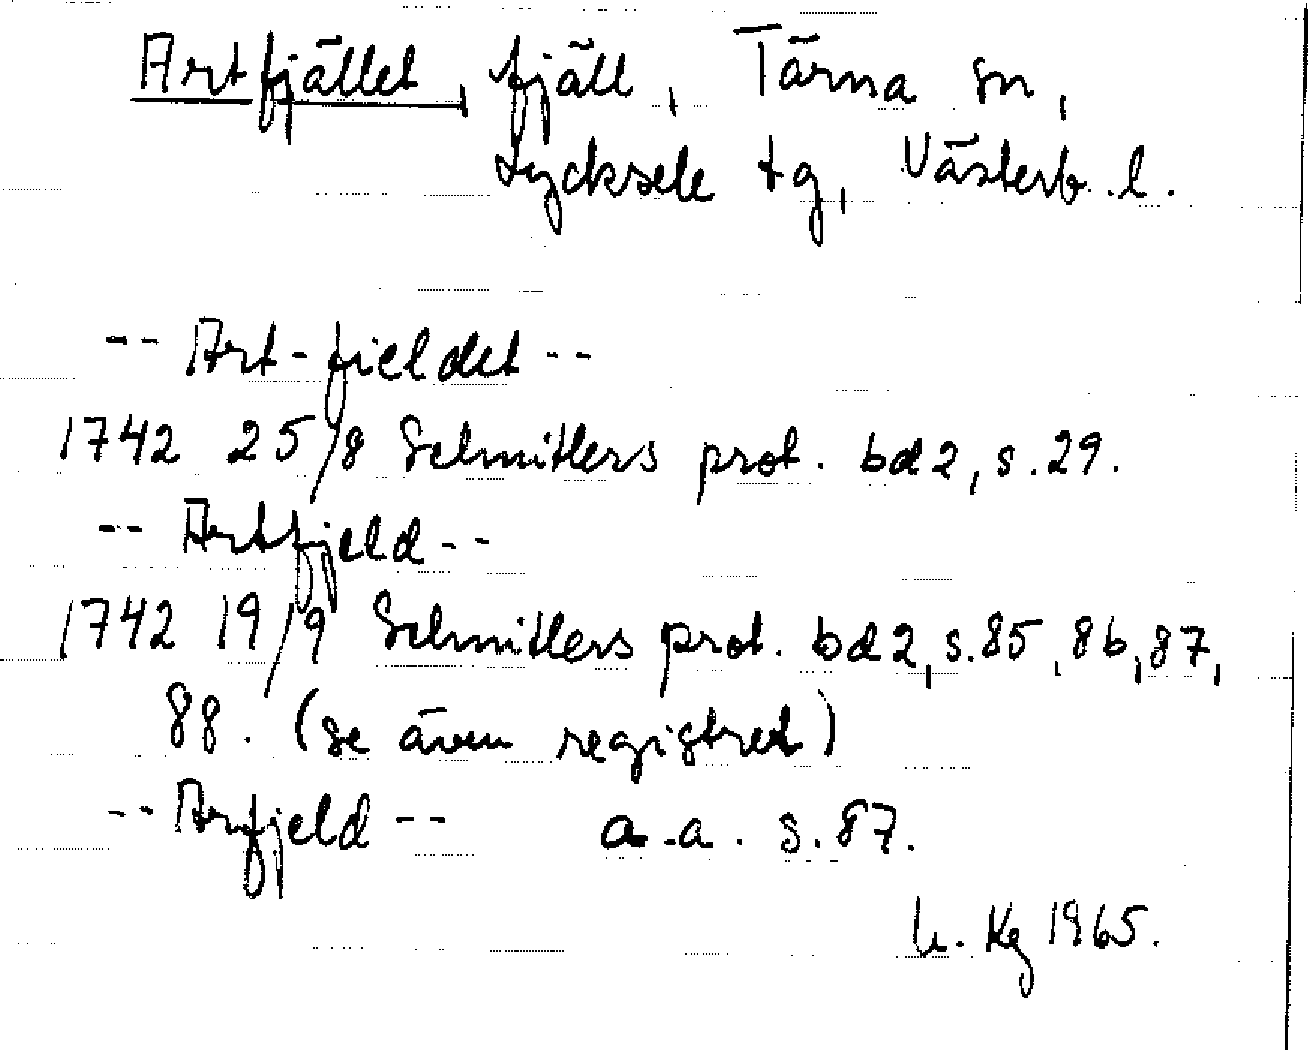 Artfjället, fjäll, Tärna sn,
Lycksele tg, Västerb. l.
-- Art-fieldet --
1742 25/8 Schnitlers prot. bd 2, s. 29.
-- Artfjeld --
1742 19/9 Schnitlers prot. bd 2, s. 85, 86, 87,
88. (se även registret)
-- Arfjeld -- a.a. s. 87.
Kg 1965.